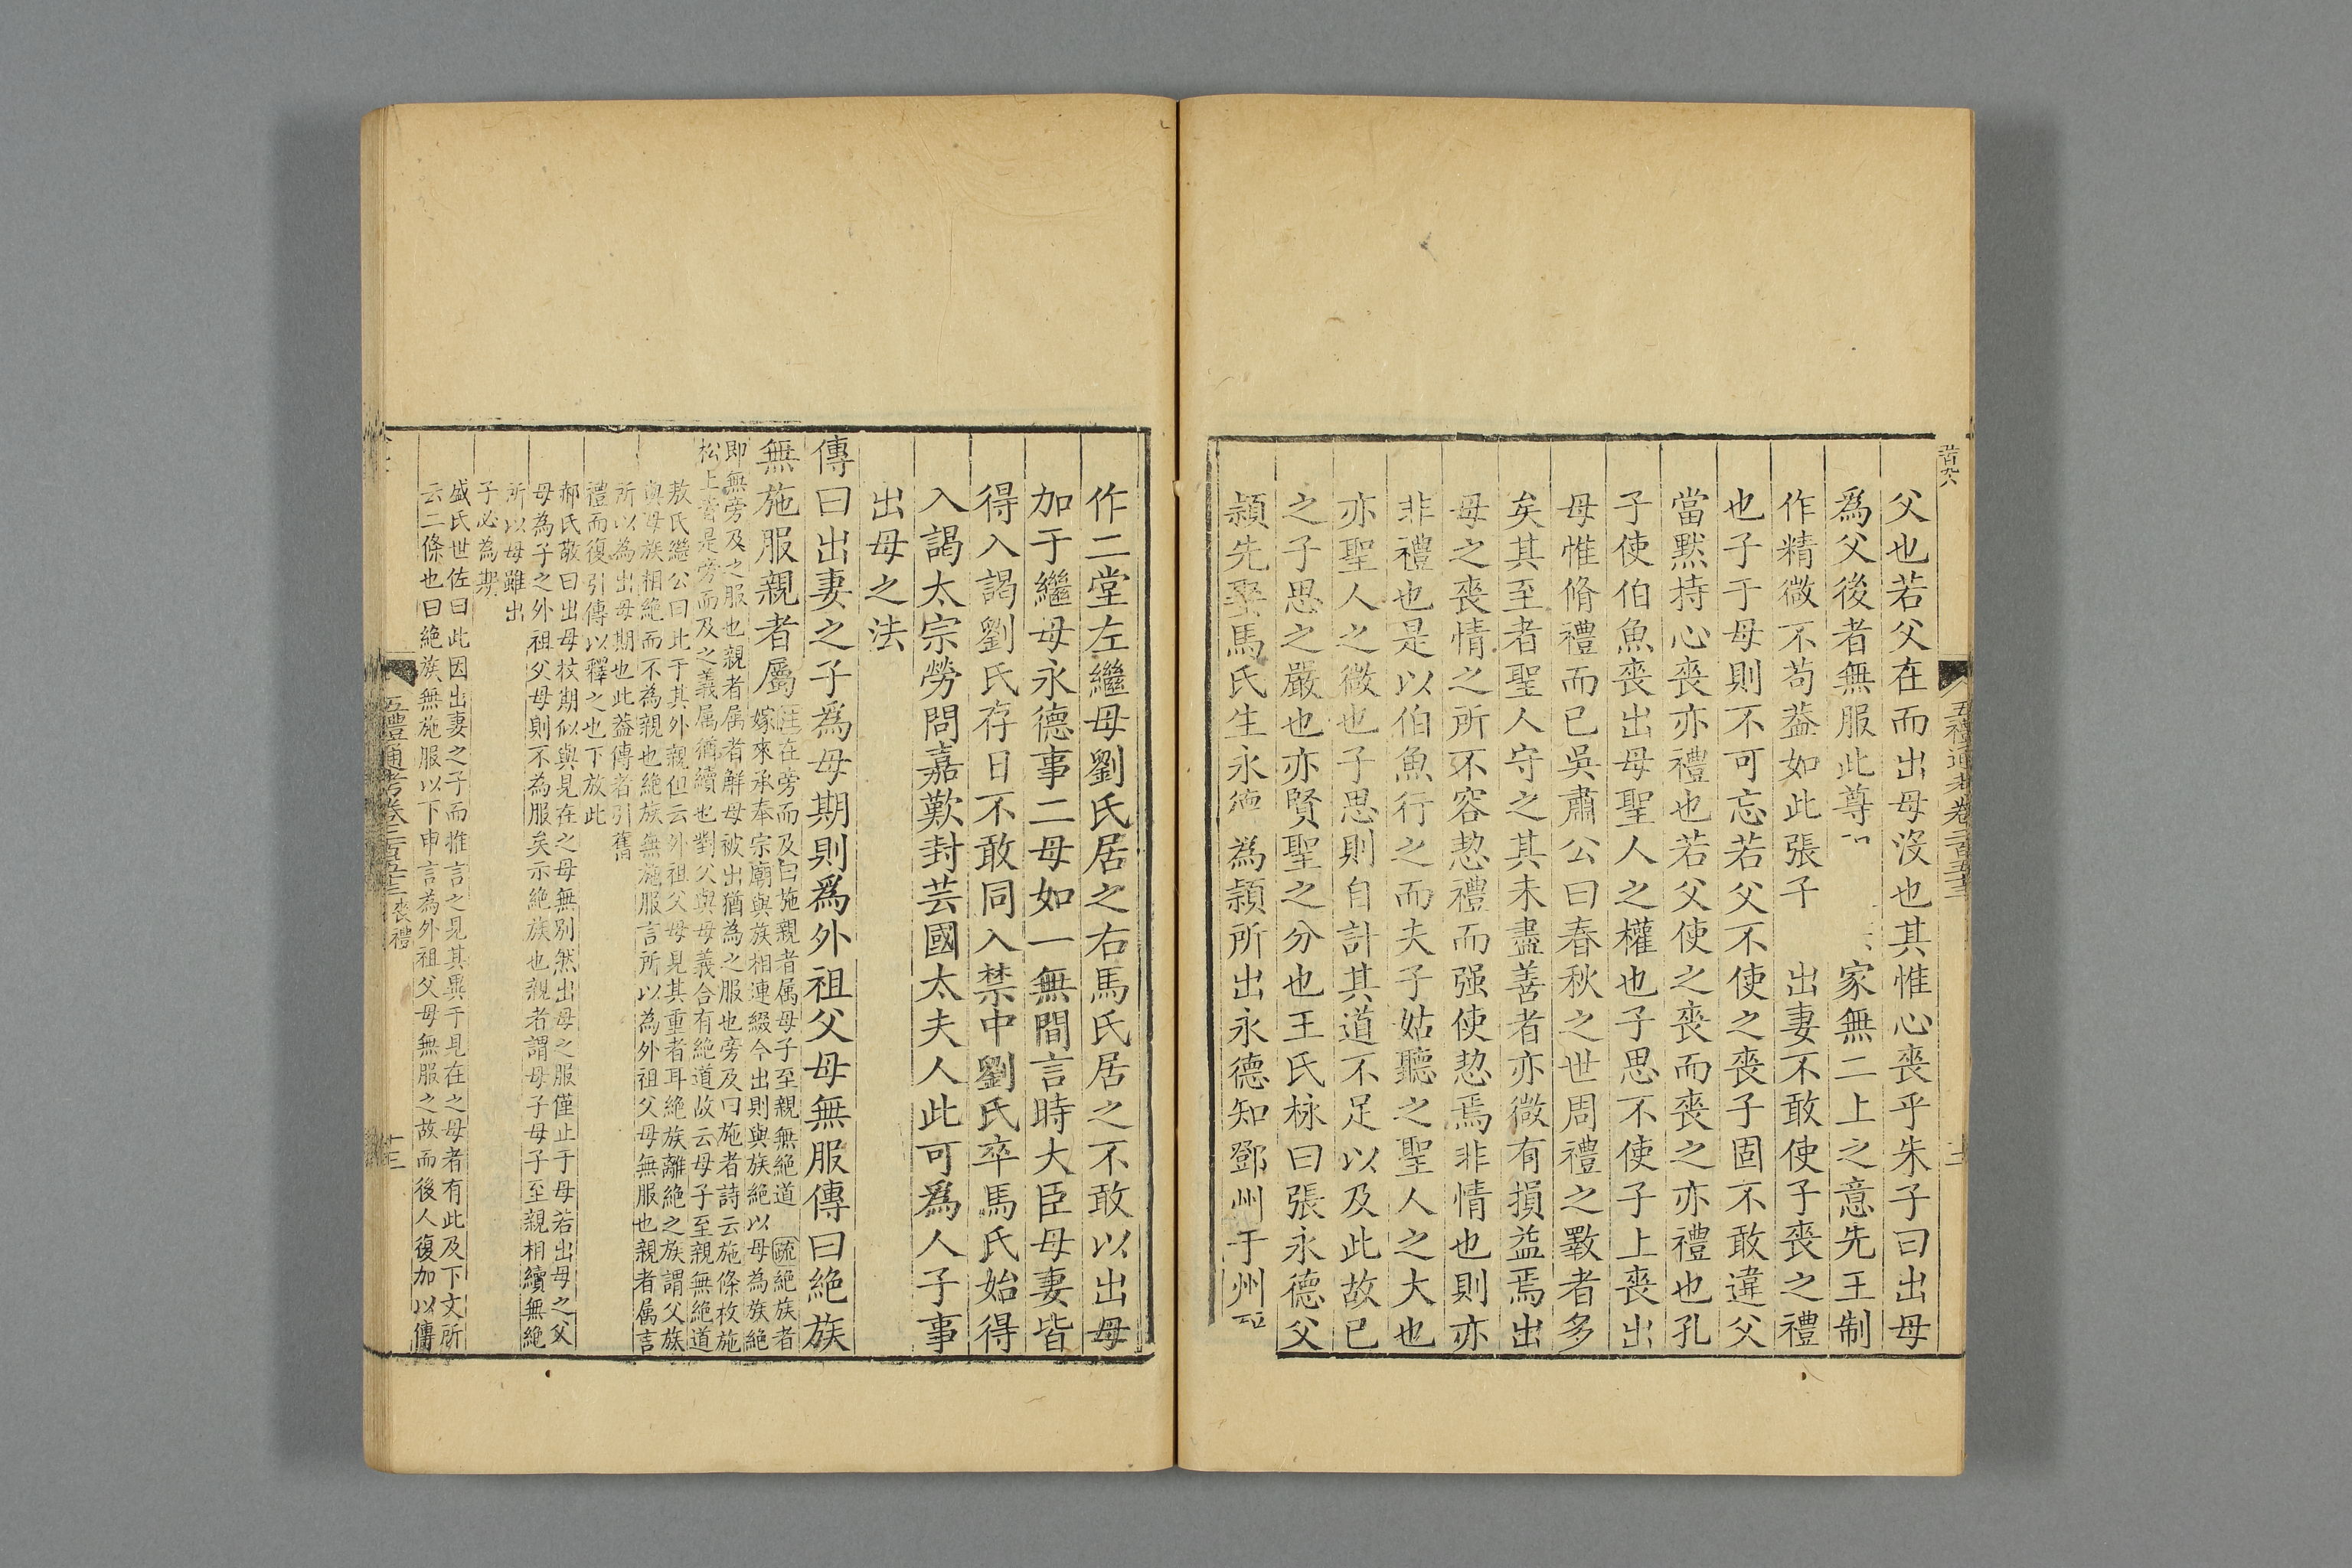 父也若父在而出母沒也其惟心喪乎朱子曰出母
爲父後者無服此尊 家無二上之意先王制
作精微不苟葢如此張子 出妻不敢使子喪之禮
也子于母則不可忘若父不使之喪子固不敢違父
當默持心喪亦禮也若父使之喪而喪之亦禮也孔
子使伯魚喪出母聖人之權也子思不使子上喪出
母惟脩禮而已吳肅公曰春秋之世周禮之斁者多
矣其至者聖人守之其未盡善者亦微有損益焉出
母之喪情之所不容恝禮而强使恝焉非情也則亦
非禮也是以伯魚行之而夫子姑聽之聖人之大也
亦聖人之微也子思則自計其道不足以及此故已
之子思之嚴也亦賢聖之分也王氏栐曰張永德父
穎先娶馬氏生永德為穎所出永德知鄧州于州
五禮通考卷二百五十三
作二堂左繼母劉氏居之右馬氏居之不敢以出母
加于繼母永德事二母如一無間言時大臣母妻皆
得入謁劉氏存日不敢同入禁中劉氏卒馬氏始得
入謁太宗勞問嘉歎封芸國太夫人此可爲人子事
出母之法
傳曰出妻之子爲母期則爲外祖父母無服傳曰絶族
無施服親者屬
注在旁而及曰施親者属母子至親無絶道 疏絶族者
嫁來承奉宗廟與族相連綴今出則與族絶以母為族絶
即無旁及之服也親者属者解母被出猶為之服也旁及曰施者詩云施條枚施
松上皆是旁而及之義属猶續也對父與母義合有絶道故云母子至親無絶道
敖氏繼公曰此于其外親但云外祖父母見其重者耳絶族離絶之族謂父族
與母族相絶而不為親也絶族無施服言所以為外祖父母無服也親者属言
所以為出母期也此葢傳者引舊
禮而復引傳以釋之也下放此
郝氏敬曰出母杖期似與見在之母無別然出母之服僅止于母若出母之父
母為子之外祖父母則不為服矣示絶族也親者謂母子母子至親相續無絶
所以母雖出
子必為期
盛氏世佐曰此因出妻之子而推言之見其異于見在之母者有此及下文所
云二條也曰絶族無施服以下申言為外祖父母無服之故而後人復加以傳
五禮通考卷二百五十三 喪禮 十三